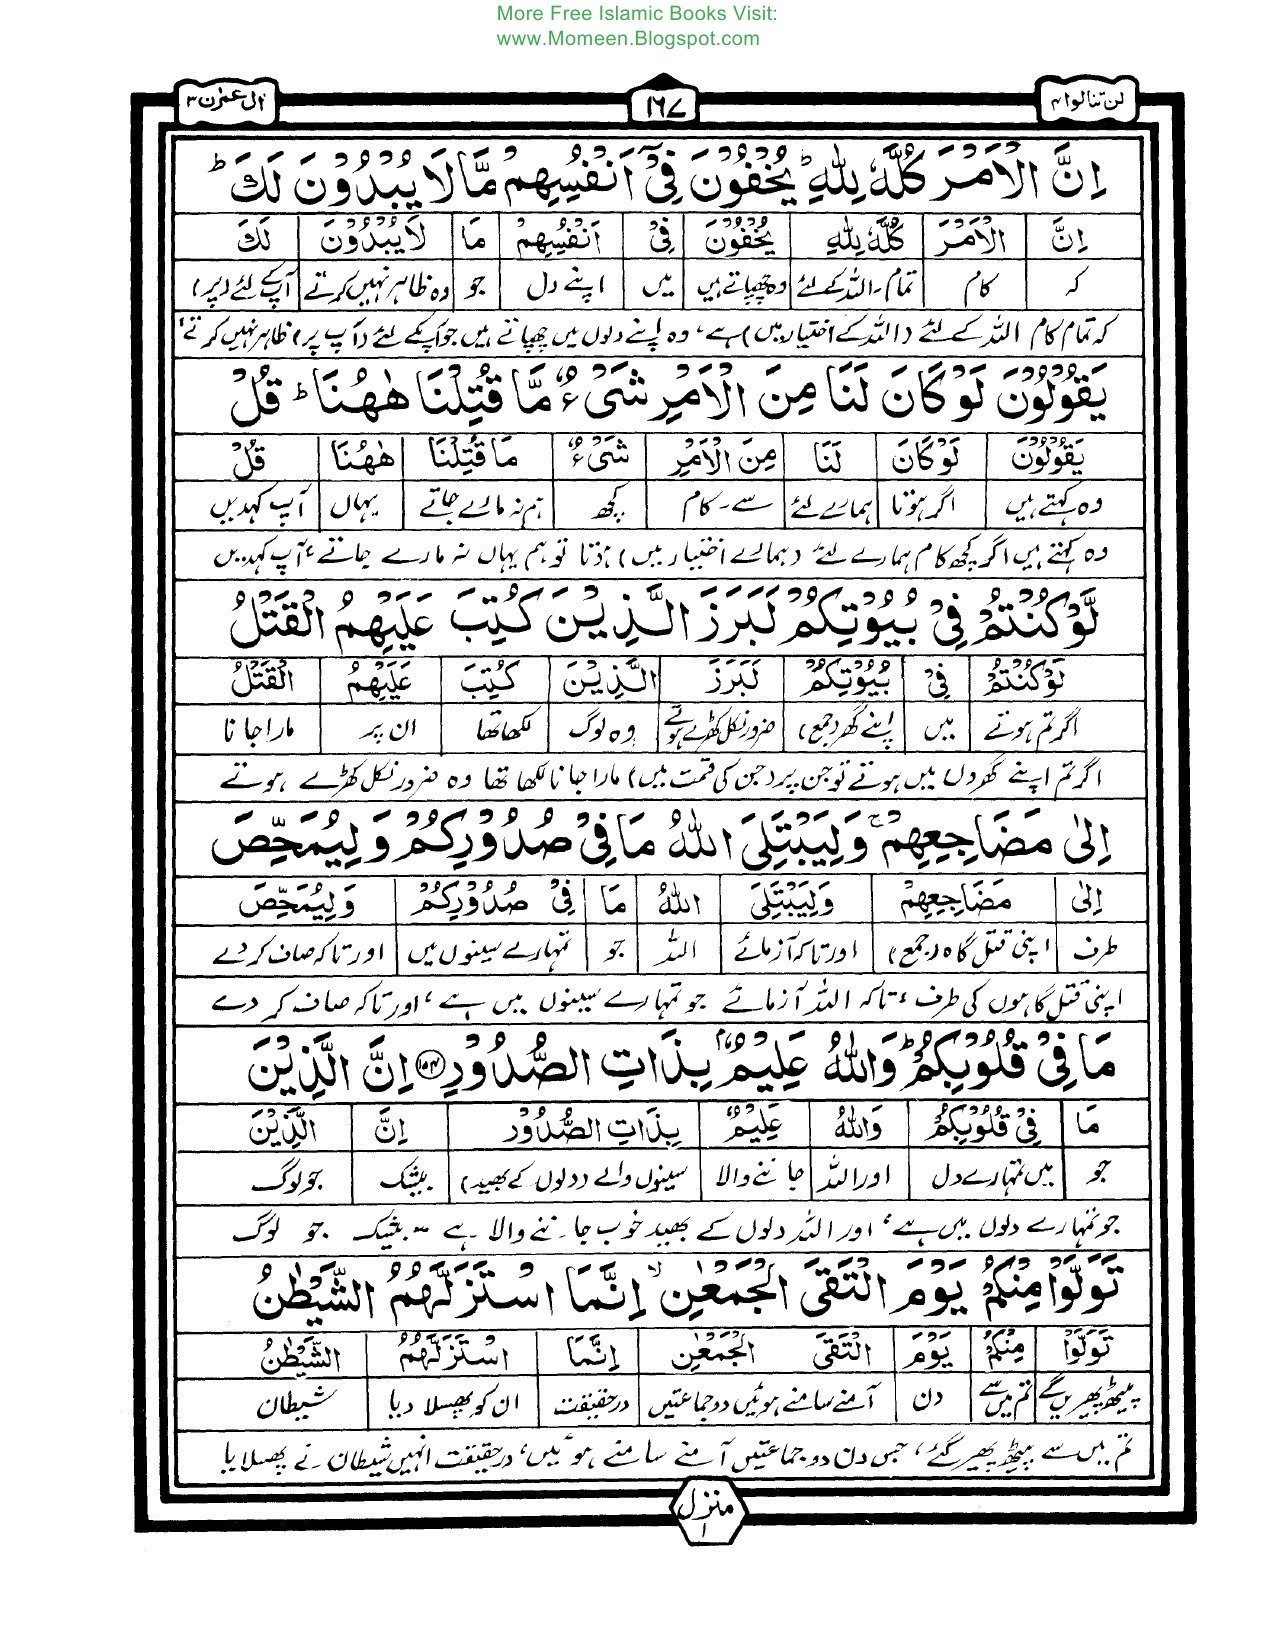 More Free Islamic Books Visit:
www.Momeen.Blogspot.com
لن تنالوا ۴
۱۶۷
اٰل عمرٰن ۳
اِنَّ الْاَمْرَ كُلَّهٗ لِلّٰهِ ؕ يُخْفُوْنَ فِيْۤ اَنْفُسِهِمْ مَّا لَا يُبْدُوْنَ لَكَ ؕ
اِنَّ الْاَمْرَ كُلَّهٗ لِلّٰهِ يُخْفُوْنَ فِيْ اَنْفُسِهِمْ مَا لَا يُبْدُوْنَ لَكَ
کہ کام تمام۔ اللہ کے لئے وہ چھپاتے ہیں میں اپنے دل جو وہ ظاہر نہیں کرتے آپ کے لئے (پر)
کہ تمام کام اللہ کے لئے (اللہ کے اختیار میں) ہے، وہ اپنے دلوں میں چھپاتے ہیں جو آپ کے لئے (آپ پر) ظاہر نہیں کرتے،
يَقُوْلُوْنَ لَوْ كَانَ لَنَا مِنَ الْاَمْرِ شَيْءٌ مَّا قُتِلْنَا هٰهُنَا ؕ قُلْ
يَقُوْلُوْنَ لَوْ كَانَ لَنَا مِنَ الْاَمْرِ شَيْءٌ مَا قُتِلْنَا هٰهُنَا قُلْ
وہ کہتے ہیں اگر ہوتا ہمارے لئے سے۔ کام کچھ ہم نہ مارے جاتے یہاں آپ کہدیں
وہ کہتے ہیں اگر کچھ کام ہمارے لئے (ہمارے اختیار میں) ہوتا تو ہم یہاں نہ مارے جاتے، آپ کہدیں
لَّوْ كُنْتُمْ فِيْ بُيُوْتِكُمْ لَبَرَزَ الَّذِيْنَ كُتِبَ عَلَيْهِمُ الْقَتْلُ
لَوْ كُنْتُمْ فِيْ بُيُوْتِكُمْ لَبَرَزَ الَّذِيْنَ كُتِبَ عَلَيْهِمُ الْقَتْلُ
اگر تم ہوتے میں اپنے گھر (جمع) ضرور نکل کھڑے ہوتے وہ لوگ لکھا تھا ان پر مارا جانا
اگر تم اپنے گھروں میں ہوتے تو جن پر (جن کی قسمت میں) مارا جانا لکھا تھا وہ ضرور نکل کھڑے ہوتے
اِلٰى مَضَاجِعِهِمْ ۚ وَلِيَبْتَلِيَ اللّٰهُ مَا فِيْ صُدُوْرِكُمْ وَلِيُمَحِّصَ
اِلٰى مَضَاجِعِهِمْ وَلِيَبْتَلِيَ اللّٰهُ مَا فِيْ صُدُوْرِكُمْ وَلِيُمَحِّصَ
طرف اپنی قتل گاہ (جمع) اور تاکہ آزمائے اللہ جو تمہارے سینوں میں اور تاکہ صاف کر دے
اپنی قتل گاہوں کی طرف، تاکہ اللہ آزمائے جو تمہارے سینوں میں ہے، اور تاکہ صاف کر دے
مَا فِيْ قُلُوْبِكُمْ ؕ وَاللّٰهُ عَلِيْمٌۢ بِذَاتِ الصُّدُوْرِ ۝۱۵۴ اِنَّ الَّذِيْنَ
مَا فِيْ قُلُوْبِكُمْ وَاللّٰهُ عَلِيْمٌۢ بِذَاتِ الصُّدُوْرِ اِنَّ الَّذِيْنَ
جو میں تمہارے دل اور اللہ جاننے والا سینوں والے (دلوں کے بھید) بیشک جو لوگ
جو تمہارے دلوں میں ہے، اور اللہ دلوں کے بھید خوب جاننے والا ہے ۔ بیشک جو لوگ
تَوَلَّوْا مِنْكُمْ يَوْمَ الْتَقَى الْجَمْعٰنِ ۙ اِنَّمَا اسْتَزَلَّهُمُ الشَّيْطٰنُ
تَوَلَّوْا مِنْكُمْ يَوْمَ الْتَقَى الْجَمْعٰنِ اِنَّمَا اسْتَزَلَّهُمُ الشَّيْطٰنُ
پیٹھ پھیریں گے تم میں سے دن آمنے سامنے ہوئیں دو جماعتیں درحقیقت ان کو پھسلا دیا شیطان
تم میں سے پیٹھ پھیر گئے، جس دن دو جماعتیں آمنے سامنے ہوئیں، درحقیقت انہیں شیطان نے پھسلایا
منزل ۱